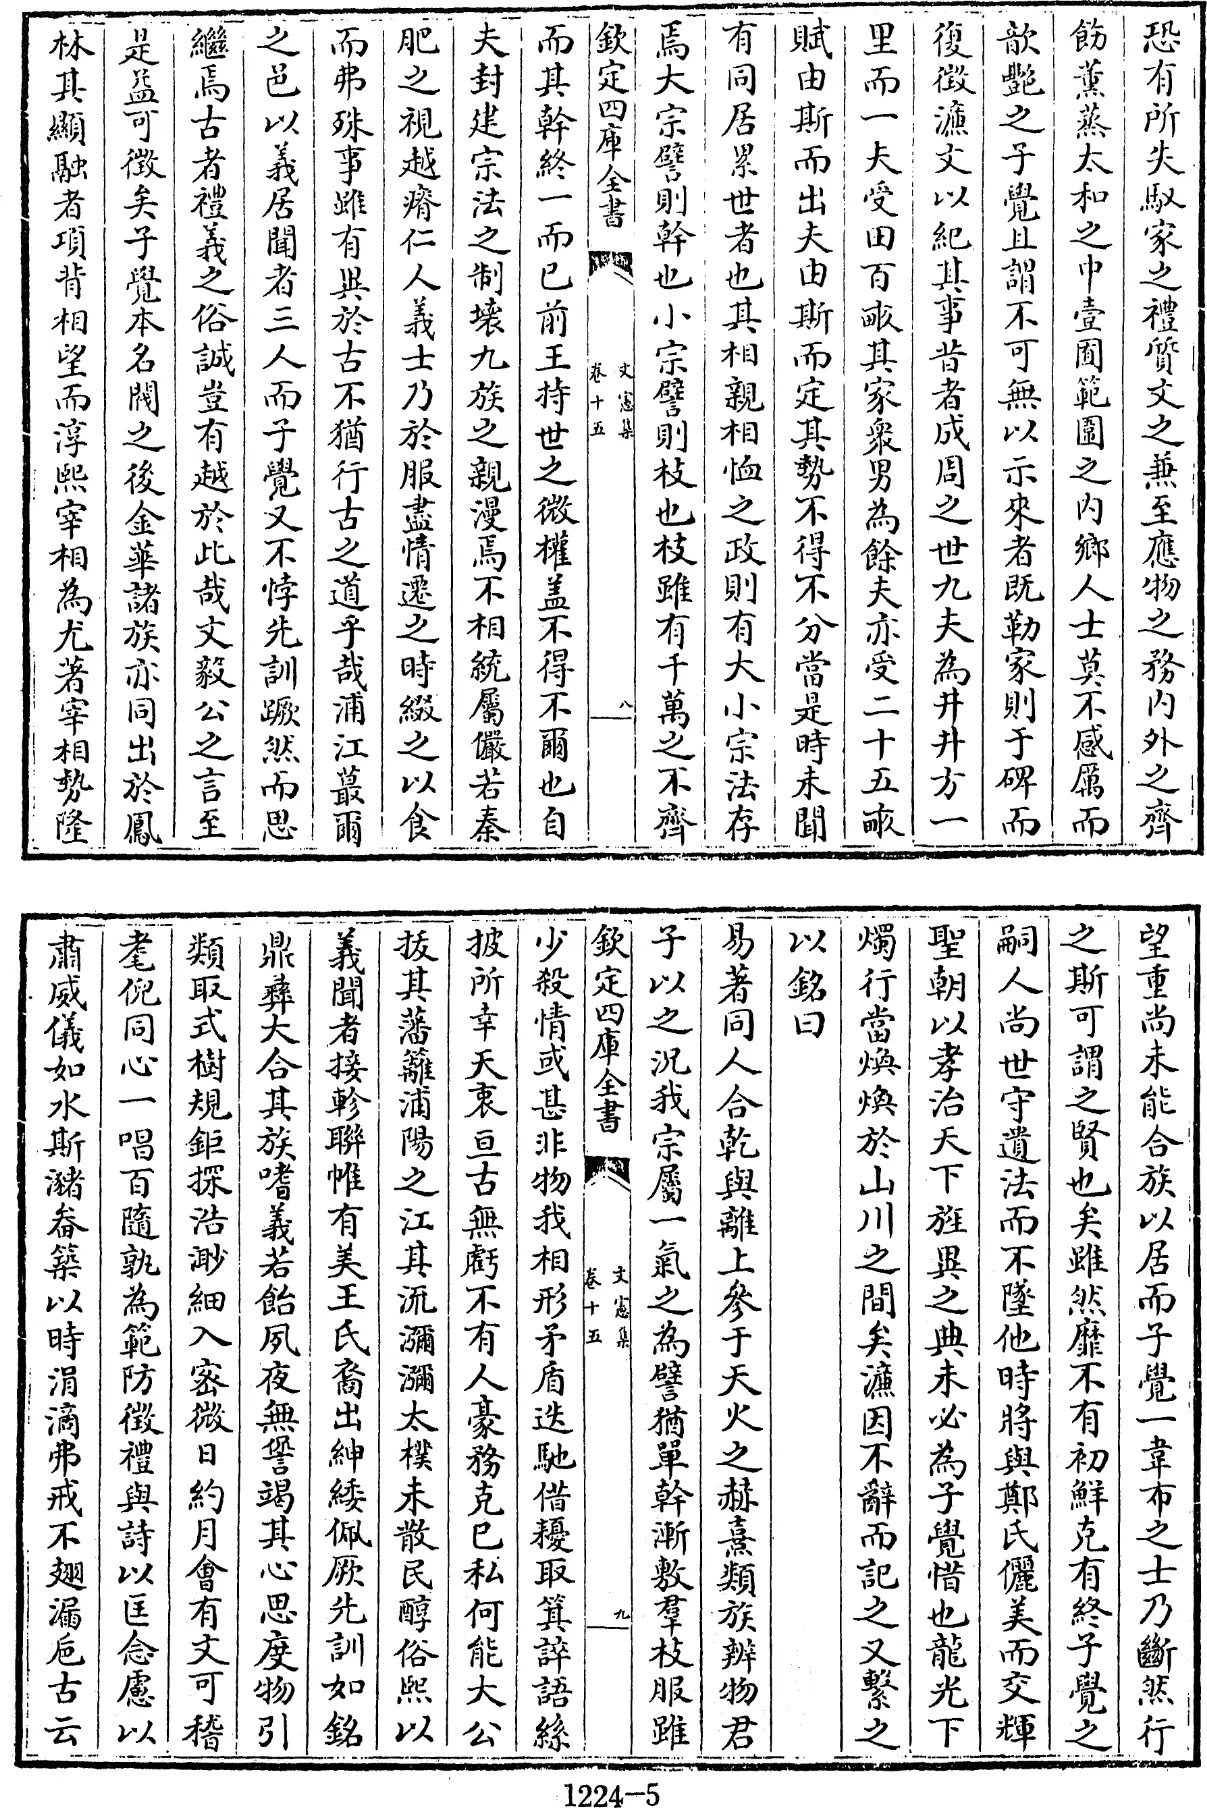 恐有所失馭家之禮質文之兼至應物之務内外之齊
飭薰蒸太和之中壹囿範圍之内鄉人士莫不感厲而
歆艷之子覺且謂不可無以示來者既勒家則于碑而
復徵濂文以紀其事昔者成周之世九夫為井井方一
里而一夫受田百畝其家衆男為餘夫亦受二十五畝
賦由斯而出夫由斯而定其勢不得不分當是時未聞
有同居累世者也其相親相恤之政則有大小宗法存
焉大宗譬則幹也小宗譬則枝也枝雖有千萬之不齊
欽定四庫全書
文憲集
卷十五
八
而其幹終一而已前王持世之微權盖不得不爾也自
夫封建宗法之制壊九族之親漫焉不相統屬儼若秦
肥之視越瘠仁人義士乃於服盡情遷之時綴之以食
而弗殊事雖有異於古不猶行古之道乎哉浦江蕞爾
之邑以義居聞者三人而子覺又不悖先訓蹶然而思
繼焉古者禮義之俗誠豈有越於此哉文毅公之言至
是益可徵矣子覺本名閥之後金華諸族亦同出於鳳
林其顯融者項背相望而淳熙宰相為尤著宰相勢隆
望重尚未能合族以居而子覺一韋布之士乃斷然行
之斯可謂之賢也矣雖然靡不有初鮮克有終子覺之
嗣人尚世守遺法而不墜他時將與鄭氏儷美而交輝
聖朝以孝治天下旌異之典未必為子覺惜也龍光下
燭行當煥煥於山川之間矣濂因不辭而記之又繫之
以銘曰
易著同人合乾與離上參于天火之赫熹類族辨物君
子以之況我宗屬一氣之為譬猶單幹漸敷羣枝服雖
欽定四庫全書
文憲集
卷十五
九
少殺情或甚非物我相形矛盾迭馳借耰取箕誶語絲
披所幸天衷亘古無虧不有人豪務克已私何能大公
拔其藩籬浦陽之江其流瀰瀰太樸未散民醇俗熙以
義聞者接軫聯帷有美王氏裔出紳緌佩厥先訓如銘
鼎彞大合其族嗜義若飴夙夜無諐竭其心思度物引
類取式樹規鉅探浩渺細入宻微日約月會有文可稽
耄倪同心一唱百隨孰為範防徵禮與詩以匡念慮以
肅威儀如水斯瀦畚築以時涓滴弗戒不翅漏巵古云
1224-5